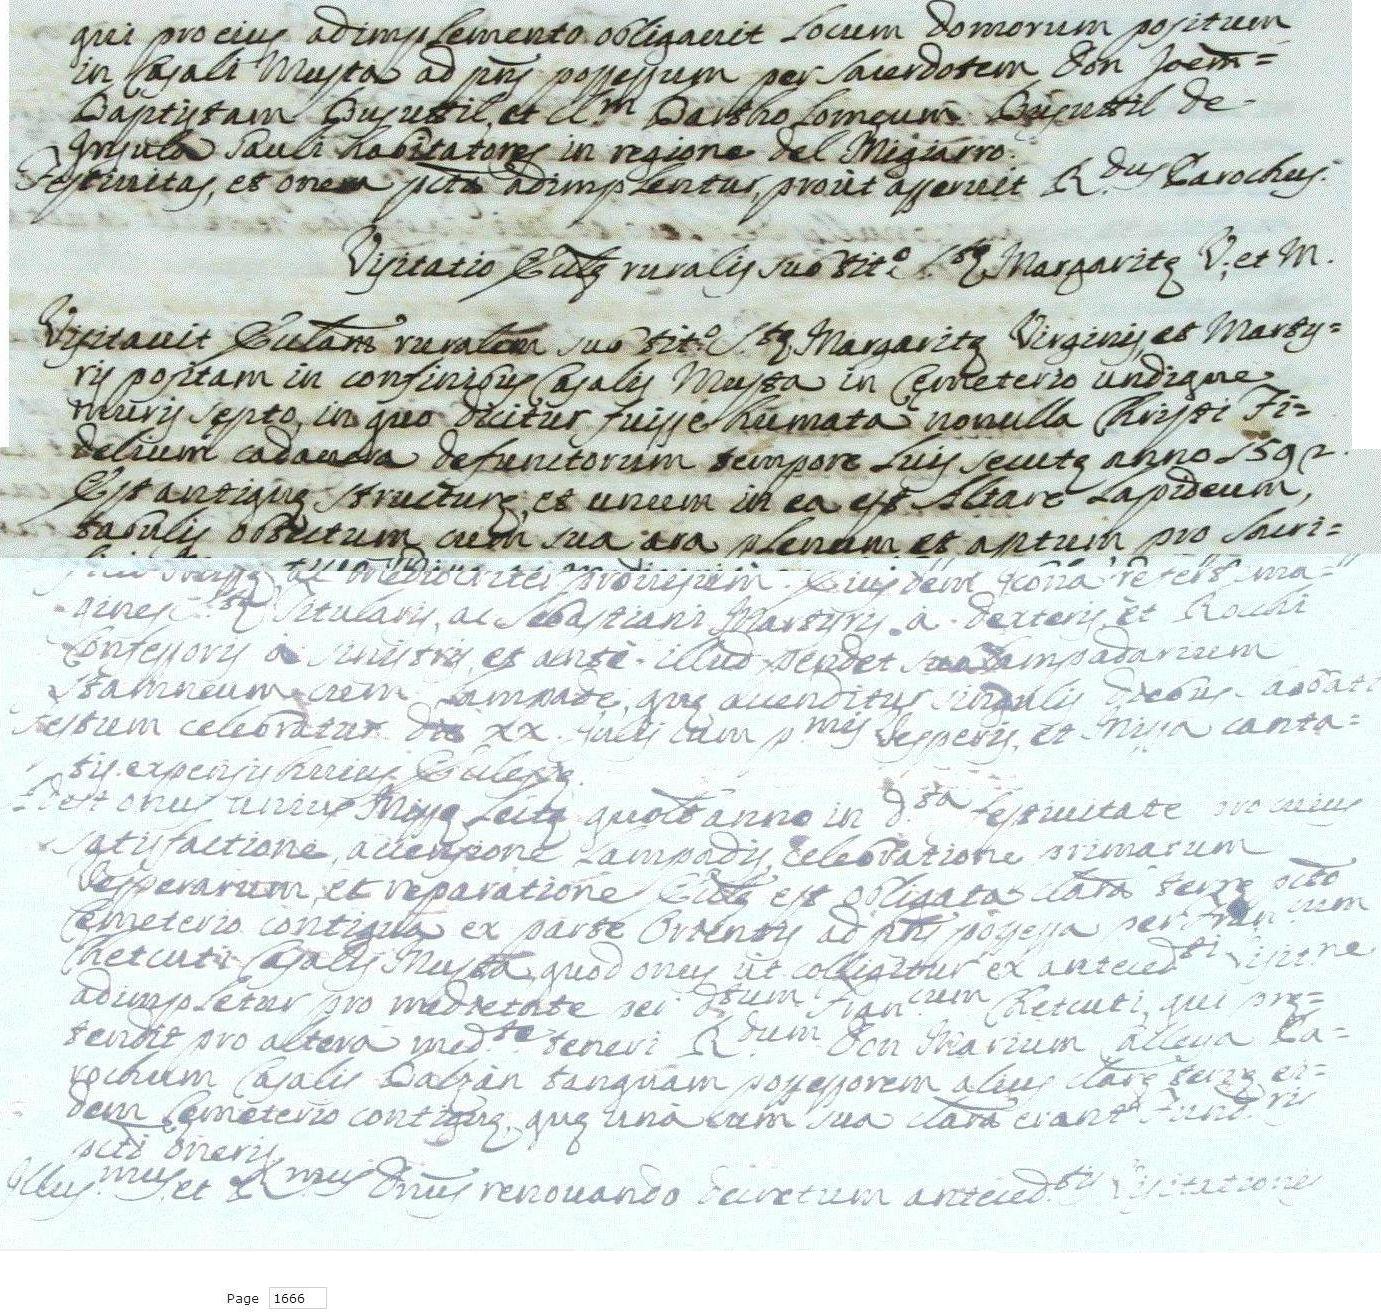 qui pro eius adimplemento obligauit Locum domorum positum
in Casali Musta ad pñs possessum per Sacerdotem Don Joem=
Baptistam Busuttil, et Cl.m Bartholomeum Busuttil de
Insula Pauli habitatores in regione del Migiarro.
Festiuitas, et onera pcta adimplentur, prout asseruit R.dus Parochus.
Visitatio Ecclę ruralis sub tit.o S.tę Margaritę V. et M.
Visitauit Ecclam ruralem sub tit.o S.tę Margaritę Virginis, et Marty=
ris positam in confinibus Casalis Musta in Cemeterio undique
muris septo, in quo dicitur fuisse humata nonulla Christi Fi=
delium cadauera defunctorum tempore Luis secutę anno 1592.
Est antiquę structurę, et unum in ea est Altare Lapideum,
tabulis obtectum cum sua ara plenum et aptum pro Sacri=
ac mediocriter prouisum. Eiusdem Icona refert Ima=
gines S.tę Titularis, ac Sebastiani Martyris a dexteris, et Rochi
Confessoris a sinistris, et ante illud pendet suum Lampadarium
stamneum cum Lampade, quę accenditur singulis diebus Sabati
Festum celebratur die XX Julii cum p.mis Vesperis, et Missa canta=
tis expensis huius Ecclesię.
Adest onus unius Missę Lectę quolt anno in d.ta Festiuitate pro cuius
satisfactione, accensione Lampadis, celebratione primarum
Vesperarum, et reparatione Ecclę est obligata clasa terrę pcto
Cemeterio contigua ex parte Orientis ad pñs possessa per Fran.cum
Chetcuti Casalis Musta, quod onus ut colligitur ex anteced.ti Visit.ne
adimpletur pro medietate per d.tum Fran.cum Chetcuti, qui prę=
tendit pro altera med.te teneri R.dum Don Marium Calleya Pa=
rochum Casalis Balzan tanquam possessorem alius clasę terrę ei=
dem Cemeterio contiguę, quę una cum sua clasa erant
pcti oneris.
Illus.mus et R.mus Dñus renouando decretum anteced.tis Visitationis